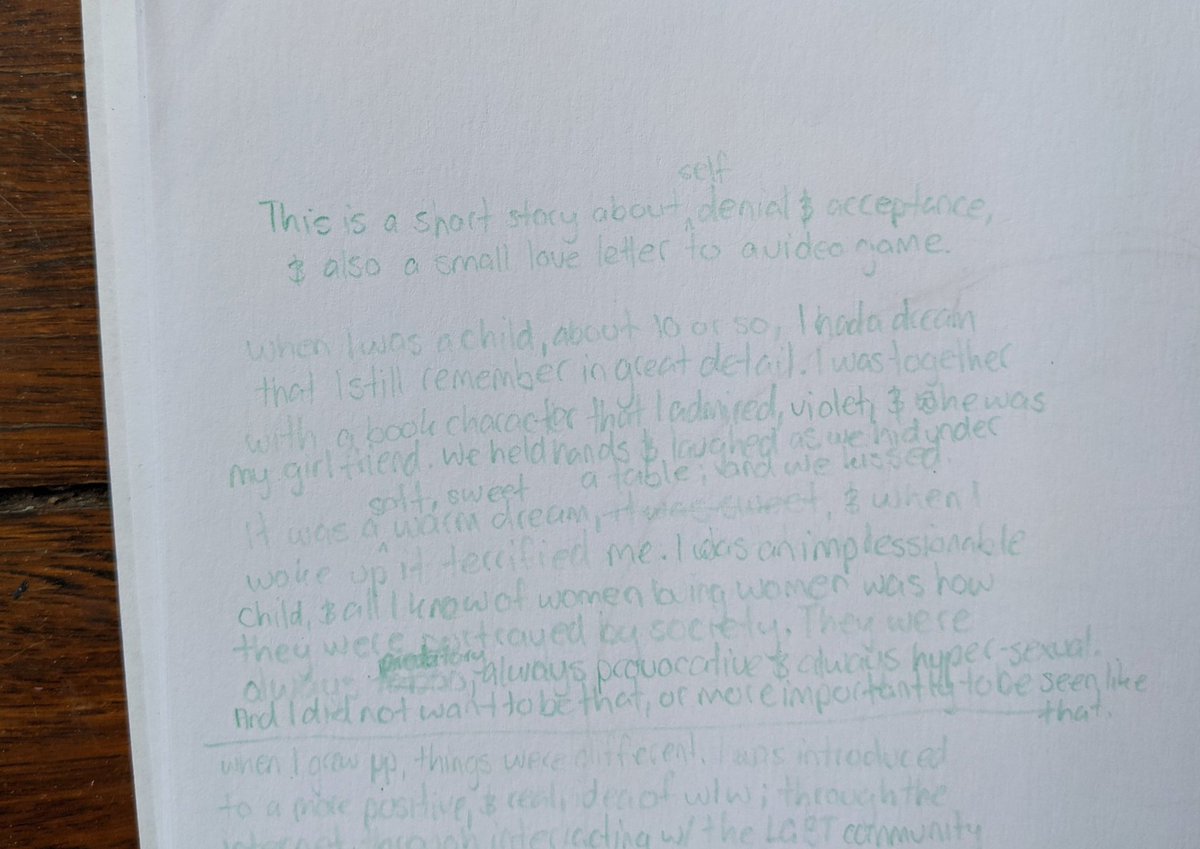 self
This is a short story about ‸ denial & acceptance,
& also a small love letter to a video game.
when I was a child, about 10 or so, I had a dream
that I still remember in great detail. I was together
with a book character that I admired, violet, & she was
my girlfriend. we held hands & laughed as we hid under
a table, and we kissed.
soft, sweet
It was a ‸ warm dream, it was sweet, & when I
woke up it terrified me. I was an impressionable
child, & all I know of women loving women was how
they were portrayed by society. They were
always predatory, always provocative & always hyper-sexual.
And I did not want to be that, or more importantly to be seen like
that.
when I grew up, things were different. I was introduced
to a more positive, & real, idea of wlw; through the
internet, through interacting w/ the LGBT community